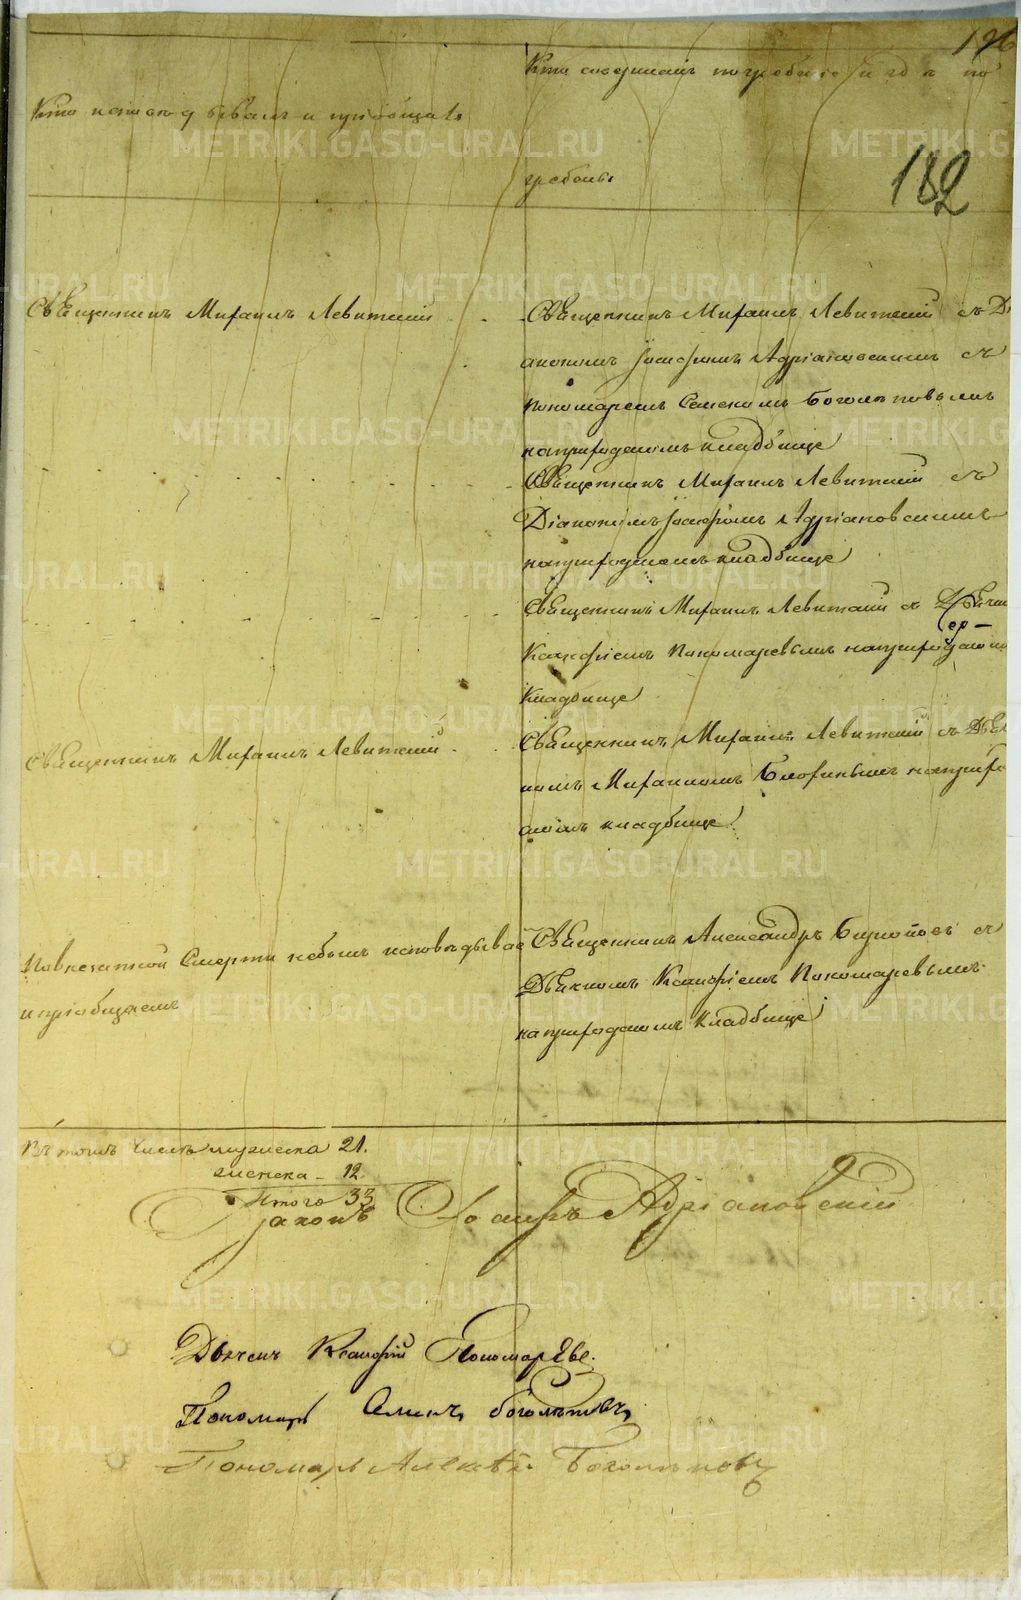 196
Кто совершалъ погребеніе и гдѣ по
Кто исповѣдывалъ и пріобщалъ
гребены
182
Священникъ Михаилъ Левитскій
Священникъ Михаилъ Левитскій съ Ді
акономъ Іоасафомъ Адріановскимъ съ
пономаремъ Семеномъ Боголѣповымъ
на приходскомъ кладбище
Священникъ Михаилъ Левитскій съ
Діакономъ Іоасафомъ Адріановскимъ
на приходскомъ кладбище
Священникъ Михаилъ Левитскій съ
Ксанфіемъ Пономаревымъ на приходскомъ
кладбище
Священникъ Михаилъ Левитскій
Священникъ Михаилъ Левитскій съ
Михаиломъ на прихо
кладбище
По внезапной смерти небылъ исповѣдыва
и пріобщаемъ
Священникъ Александръ съ
Дьячкомъ Ксанфіемъ Пономаревымъ
на приходскомъ кладбище
Въ томъ числѣ мужеска 21.
женска - 12
Итого 33
Діаконъ Іоасафъ Адріановскій
Дьячекъ Ксанфій Пономаревъ.
Пономарь Семенъ Боголѣповъ
Пономарь Алексѣй Боголѣповъ
METRIKI.GASO-URAL.RU